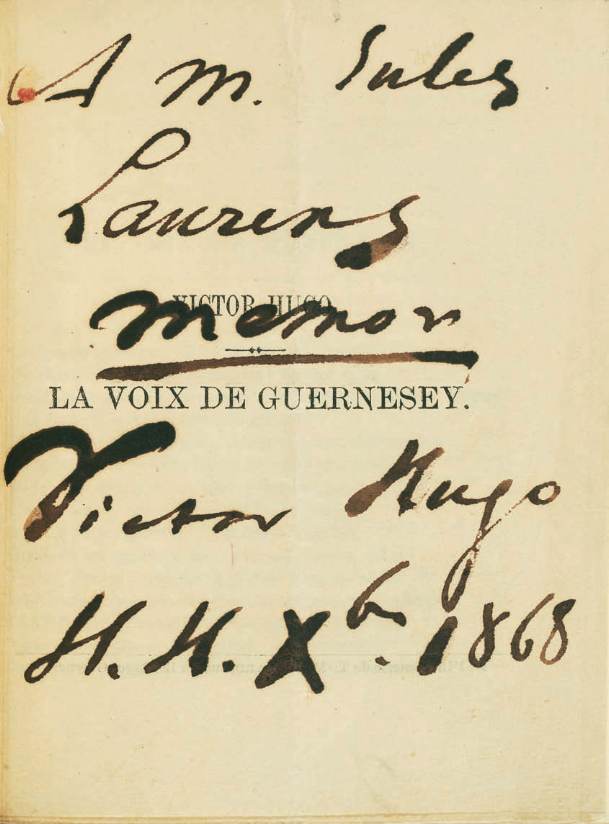 A M. Jules
Laurens
VICTOR HUGO
memor
LA VOIX DE GUERNESEY.
Victor Hugo
H. H. Xbre. 1868